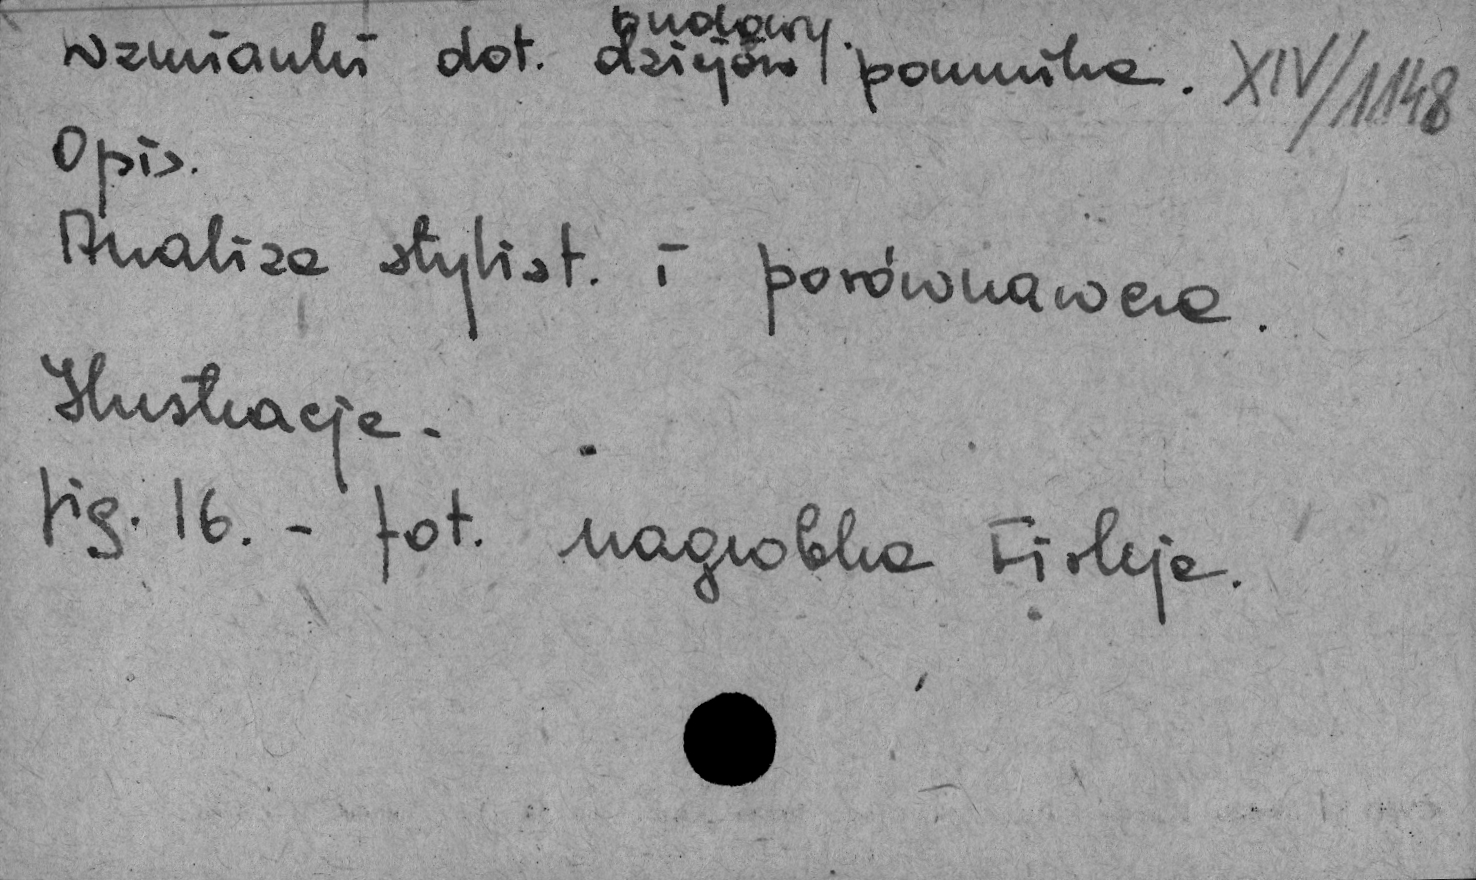 budowy.
wzmianki dot. dziejów pomnika. XIV/1148
Opis.
Analiza stylist. i porównawcza.
Ilustracje.
fig. 16. - fot. nagrobka Firleja.